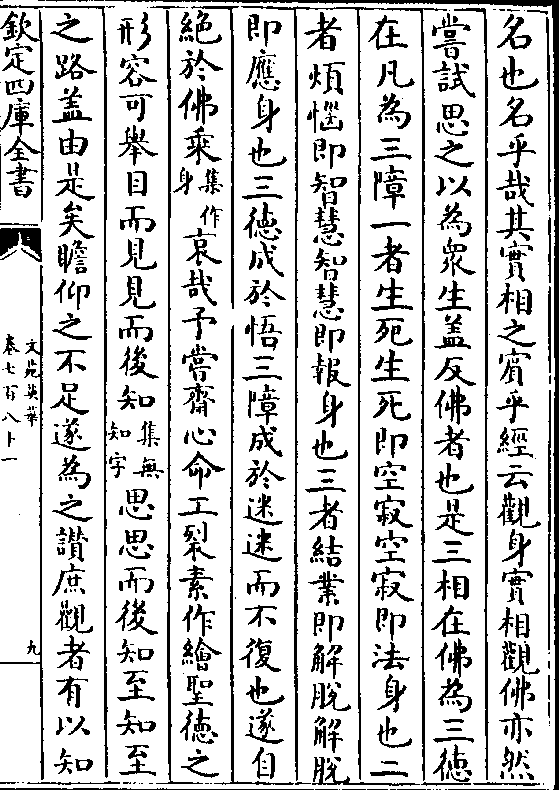 名也名乎哉其實相之賓乎經云觀身實相觀佛亦然
嘗試思之以為衆生盖反佛者也是三相在佛為三徳
在凡為三障一者生死生死即空寂空寂即法身也二
者煩惱即智慧智慧即報身也三者結業即解脫解脫
即應身也三徳成於悟三障成於迷迷而不復也遂自
絶於佛乘集作身哀哉予嘗齋心命工裂素作繪聖徳之
形容可舉目而見見而後知集無知字思思而後知至知至
之路盖由是矣瞻仰之不足遂為之讃庶觀者有以知
欽定四庫全書
文苑英華
卷七百八十一
九